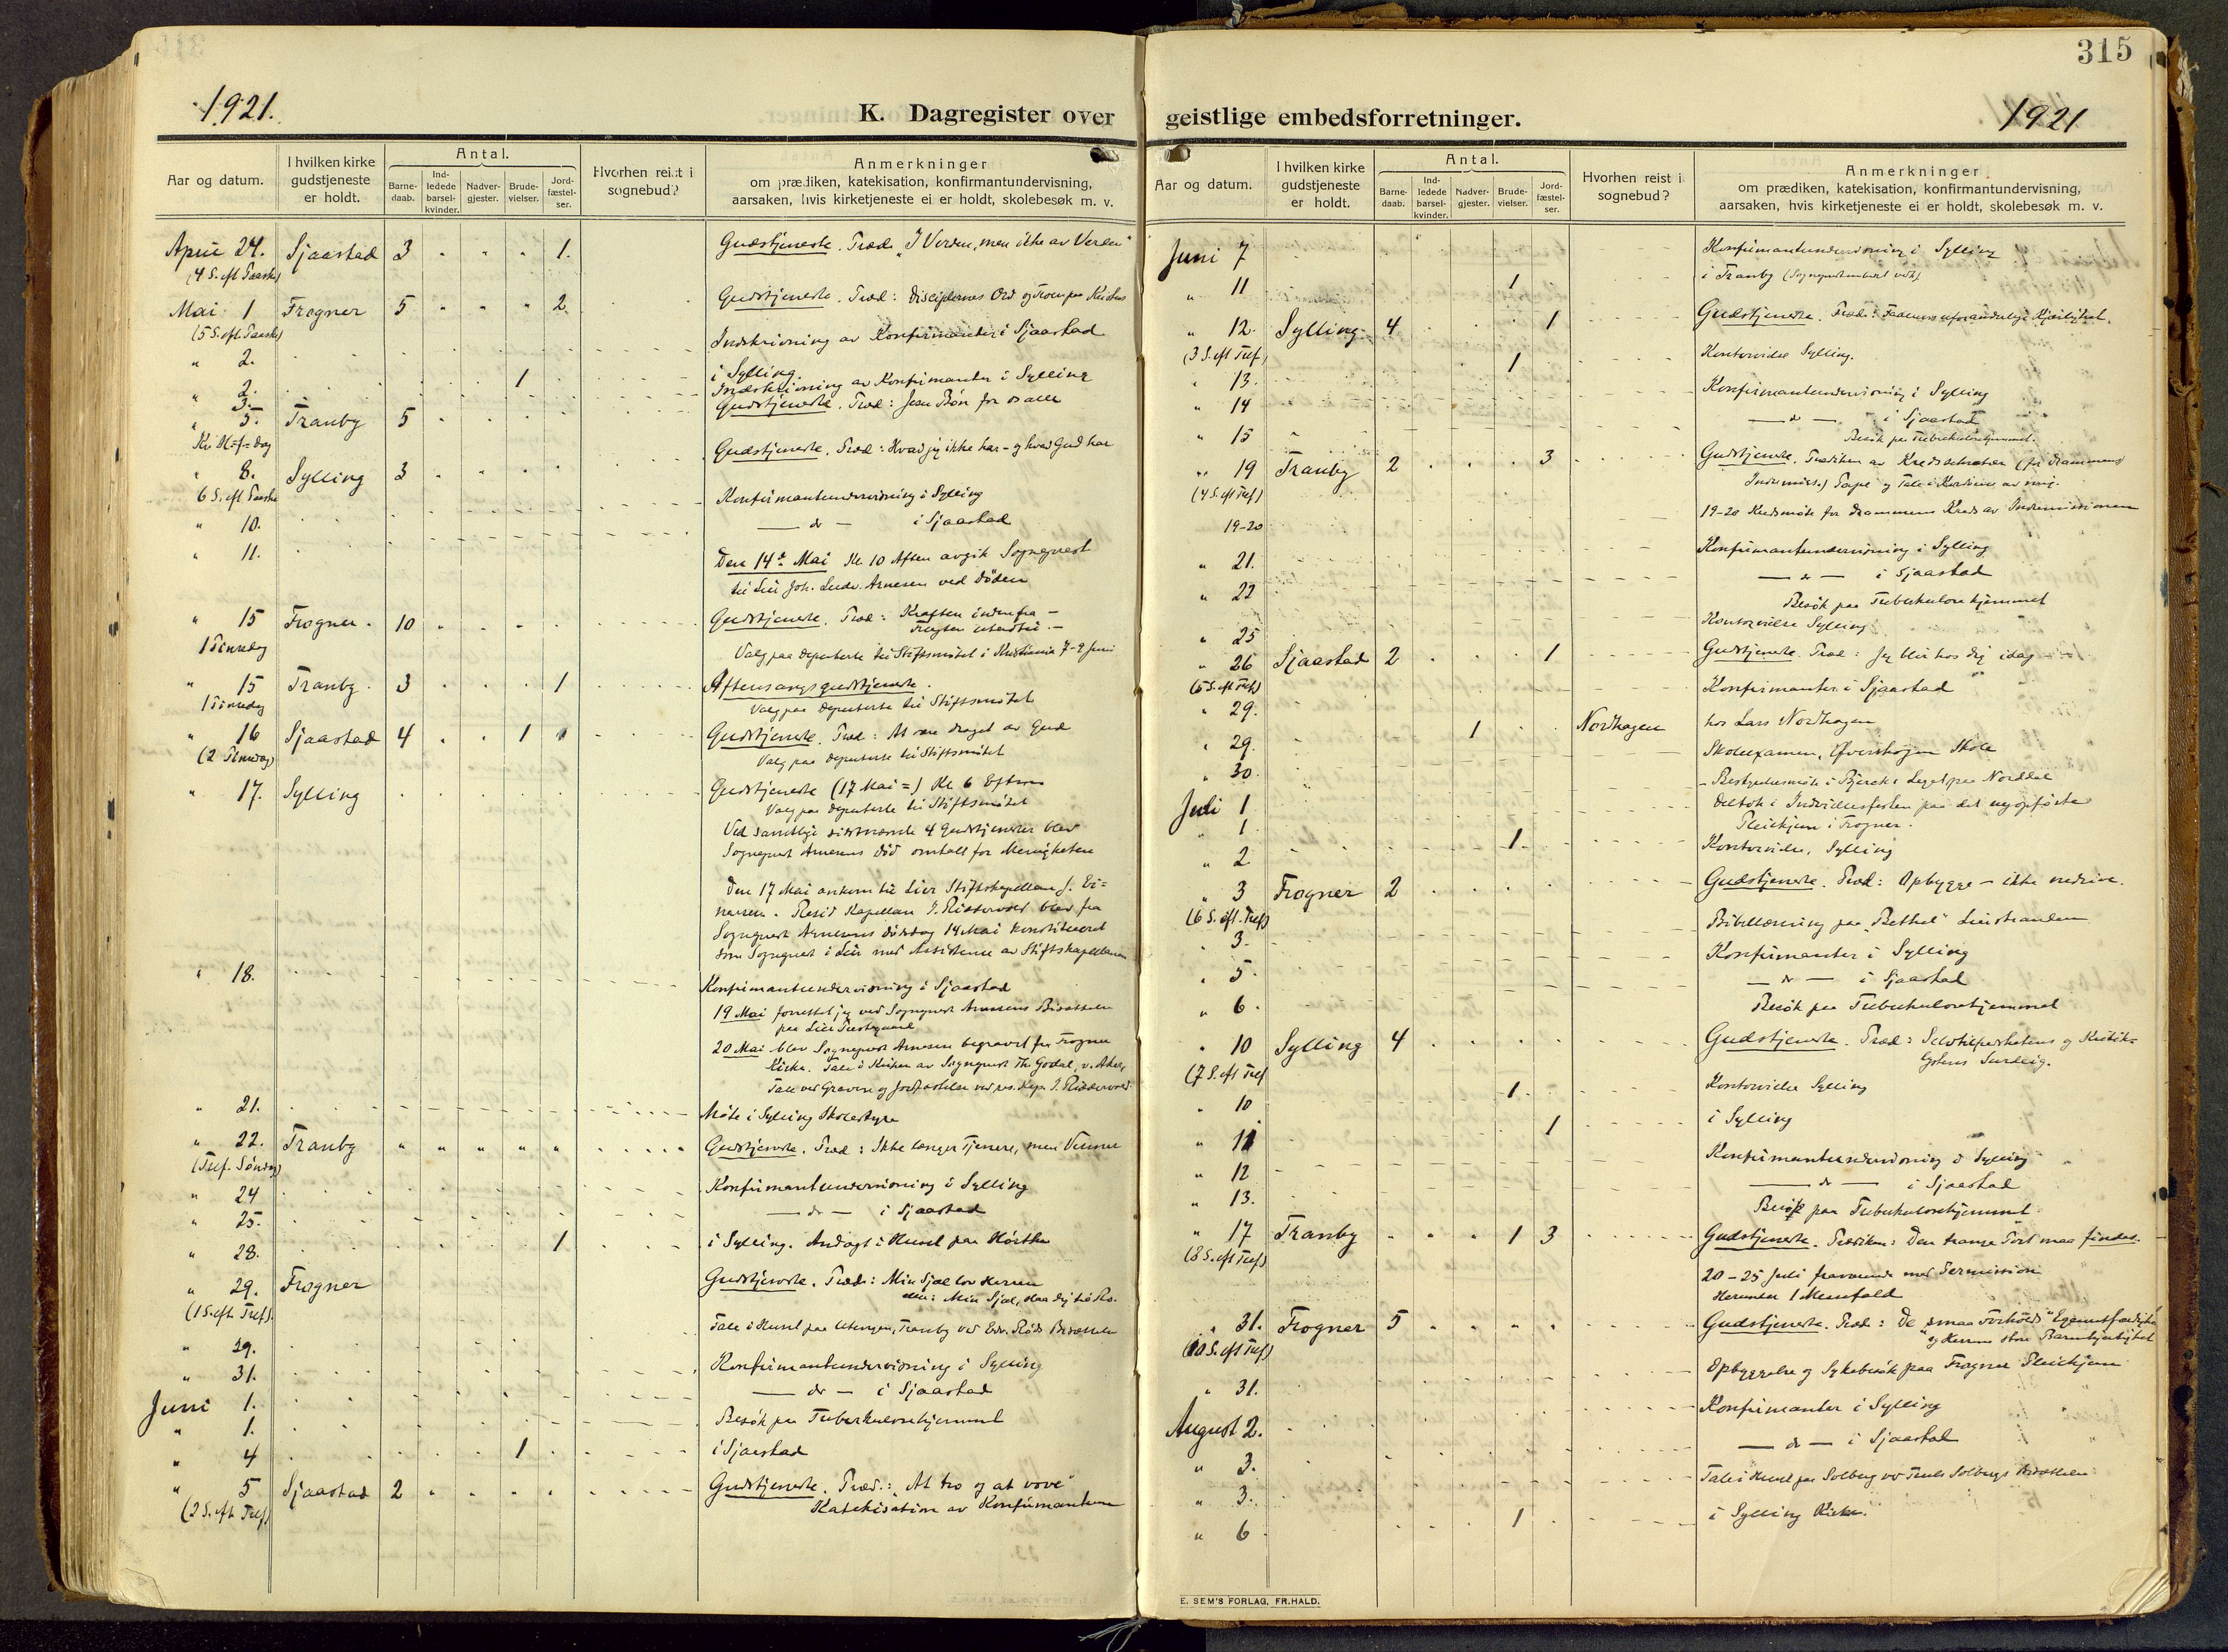 315
1921.
K. Dagregister over geistlige embedsforretninger.
1921
Aar og datum.
I hvilken kirke gudstjeneste er holdt.
Antal.
Barne-daab.
Ind-ledede barsel-kvinder.
Nadver-gjester.
Brude-vielser.
Jord-fæstel-ser.
Hvorhen reist i sognebud?
Anmerkninger
om prædiken, katekisation, konfirmantundervisning,
aarsaken, hvis kirketjeneste ei er holdt, skolebesøk m. v.
April 24. Sjaastad 3 " " " 1. Gudstjeneste. Præd. "I Verden, men ikke av Verden"
(4 S. eft Paaske)
Mai 1 Frogner 5 " " " 2 Gudstjeneste. Præd: Disciplernes Ord og
(5 S. eft. Paaske)
" 2. Indskrivning av Konfirmanter i Sjaastad
" 2. 1 i Sylling
3. Indskrivning av Konfirmanter i Sylling
" 5. Tranby 5 Gudstjeneste. Præd: Jesu Bön for os alle
Kr. H=f=dag
" 8. Sylling 3 Gudstjeneste. Præd: Hvad jeg ikke har - og hvad Gud har
6 S. eft Paaske
" 10. Konfirmantundervisning i Sylling
" 11. — do — i Sjaastad
Den 14de Mai Kl. 10 Aften avgik Sogneprest
til Lier Joh. Ludv. Arnesen ved Döden
" 15 Frogner. 10 Gudstjeneste. Præd: Kraften indenfra -
1 Pinsedag
Valg paa Deputerte til Stiftsmötet i Kristiania 7-9 Juni
" 15 Tranby. 3 1 Aftensangsgudstjeneste.
1 Pinsedag Valg paa Deputerte til Stiftsmötet
" 16 Sjaastad 4 1 Gudstjeneste. Præd: At være draget av Gud
(2 Pinsedag) Valg paa Deputerte til Stiftsmötet
" 17. Sylling Gudstjeneste (17 Mai =) Kl. 6 Efterm
Valg paa Deputerte til Stiftsmötet
Ved samtlige sidstnævnte 4 Gudstjenester blev
Sogneprest Arnesens Död omtalt for Menigheten
Den 17 Mai ankom til Lier Stiftskapellan J. Ei=
narsen. Resid Kapellan J. Riddervold blev fra
Sogneprest Arnesens Dödsdag 14 Mai konstitueret
som Sogneprest i Lier med Assistense av Stiftskapellanen
" 18. Konfirmantundervisning i Sjaastad
19 Mai forrettet jeg ved Sogneprest Arnesens Bisættelse
paa Lier Prestegaard
20 Mai blev Sogneprest Arnesen begravet fra Frogner
Kirke. Tale i Kirken av Sogneprest Th. Godal, v. Aker,
Tale ved Graven og Jordfæstelse ved res. Kap. J. Riddervold
" 21. Möte i Sylling Skolestyre
" 22. Tranby " " " " " Gudstjeneste. Præd: Ikke længer Tjenere, men Venner
(Tref. Söndag)
" 24 Konfirmantundervisning i Sylling
" 25. — do — i Sjaastad
" 28. 1 i Sylling. Andagt i Huset paa
" 29. Frogner Gudstjeneste. Præd: Min Sjæl lov Herren
(1 S. eft. Tref). eller: Min Sjæl, slaa dig til Ro.
" 29. Tale i Huset paa Utengen, Tranby ved Edv. Röds Bisættelse
" 31. Konfirmantundervisning i Sylling
Juni 1. — do — i Sjaastad
" 1. Besök paa Tuberkulosehjemmet
" 4 1 i Sjaastad
" 5 Sjaastad 2 Gudstjeneste. Præd.: "At tro og at vove"
(2 S. eft Tref) Katekisation av Konfirmantene
Aar og datum.
I hvilken kirke gudstjeneste er holdt.
Antal.
Barne-daab.
Ind-ledede barsel-kvinder.
Nadver-gjester.
Brude-vielser.
Jord-fæstel-ser.
Hvorhen reist i sognebud?
Anmerkninger
om prædiken, katekisation, konfirmantundervisning,
aarsaken, hvis kirketjeneste ei er holdt, skolebesøk m. v.
Juni 7 Konfirmantundervisning i Sylling
" 11 1 i Tranby
" 12. Sylling 4 1 Gudstjeneste. Præd: Faderens uforanderlige Kjærlighet.
(3 S. eft Tref)
" 13. 1 Kontorvielse Sylling.
" 14 Konfirmantundervisning i Sylling
" 15 — do — i Sjaastad
Besök paa Tuberkulosehjemmet.
" 19 Tranby 2 3 Gudstjeneste. Prædiken av Kredssekretær (for Drammens
(4 S. eft Tref) Indremiss.)
19-20 19-20 Kredsmöte for Drammens Kreds av Indremissionen
" 21. Konfirmantundervisning i Sylling
" 22 — do — i Sjaastad
Besök paa Tuberkulosehjemmet
" 25 Kontorvielse Sylling
" 26 Sjaastad 2 1 Gudstjeneste. Præd: Jeg blir hos dig idag
(5 S. eft Tref)
" 29. Konfirmanter i Sjaastad
" 29. 1 Nordhagen hos Lars Nordhagen
" 30. Skoleexamen, Øverskogen Skole
Juli 1 - Bestyrelsesmöte i Bjercks Legat paa Norddal
" 1 Deltok i Indvielsesfesten paa det nyopförte
Pleiehjem i Frogner.
" 2 1 Kontorvielse, Sylling
" 3 Frogner 2 Gudstjeneste. Præd: Opbygge - ikke nedrive.
(6 S. eft. Tref)
" 3. Bibellæsning paa "Bethel" Lierstranden
" 5. Konfirmanter i Sylling
" 6. — do — i Sjaastad
Besök paa Tuberkulosehjemmet
" 10 Sylling 4 Gudstjeneste. Præd: Selvtilfredshetens og Kritik-
(7 S. eft Tref Surdeig.
" 10 1 Kontorvielse Sylling
" 11 1 i Sylling
" 12 Konfirmantundervisning i Sylling
" 13. — do — i Sjaastad
Besök paa Tuberkulosehjemmet
" 17 Tranby 1 3 Gudstjeneste. Prædiken: Den trange Port maa findes.
(8 S. eft Tref)
20 - 25 Juli fraværende med Permission
" 31. Frogner 5 Gudstjeneste. Præd: De smaa Forholds
(10 S. eft Tref) og Herrens store Barmhjertighet
" 31. Opbyggelse og Sykebesök paa Frogner Pleiehjem
August 2. Konfirmanter i Sylling
" 3. — do — i Sjaastad
" 3. Tale i Huset paa Solberg ved Solbergs Bisættelse
" 6 1 i Sylling Kirke.
E. SEM'S FORLAG, FR.HALD.